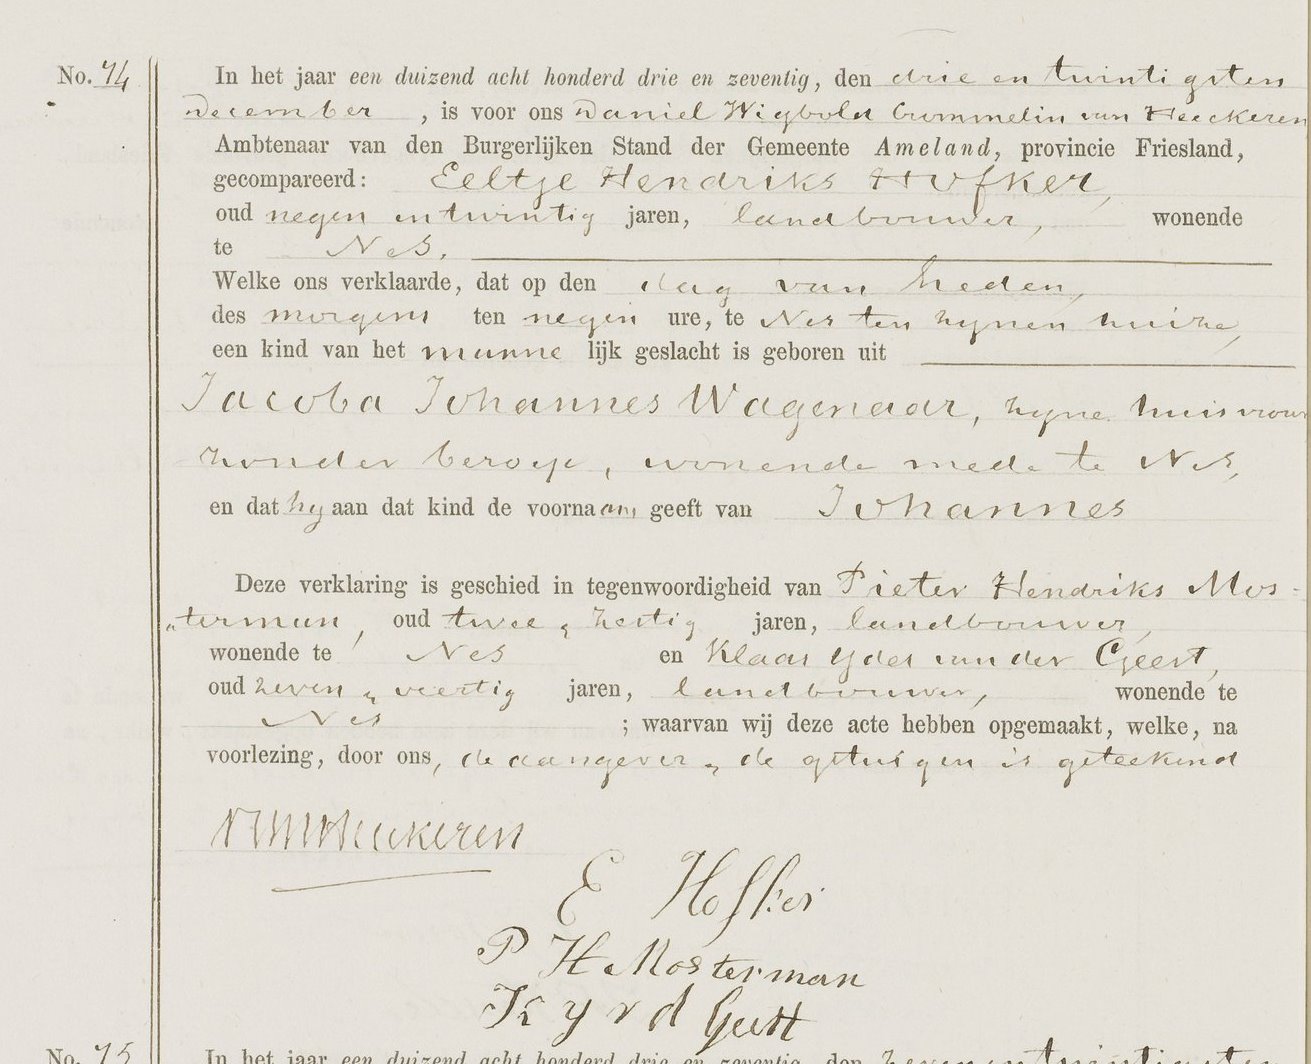 No. 74
In het jaar een duizend acht honderd drie en zeventig, den drie en twintigsten
December , is voor ons Daniel Wigbold Crommelin van Heeckeren
Ambtenaar van den Burgerlijken Stand der Gemeente Ameland, provincie Friesland,
gecompareerd: Eeltje Hendriks Hofker,
oud negen en twintig jaren, landbouwer, wonende
te Nes.
Welke ons verklaarde, dat op den dag van heden,
des morgens ten negen ure, te Nes ten zynen huize,
een kind van het manne lijk geslacht is geboren uit
Jacoba Johannes Wagenaar, zyne huisvrouw
zonder beroep, wonende mede te Nes,
en dat hy aan dat kind de voornaam geeft van Johannes
Deze verklaring is geschied in tegenwoordigheid van Pieter Hendriks Mos-
"terman, oud twee & zestig jaren, landbouwer,
wonende te Nes en Klaas Ydes van der Geest,
oud zeven & veertig jaren, landbouwer, wonende te
Nes ; waarvan wij deze acte hebben opgemaakt, welke, na
voorlezing, door ons, de aangever & de getuigen is geteekend
Heeckeren
E Hofker
P H Mosterman
K Y v d Geest
No. 75 In het jaar een duizend acht honderd drie en zeventig, den zeven en twintigsten